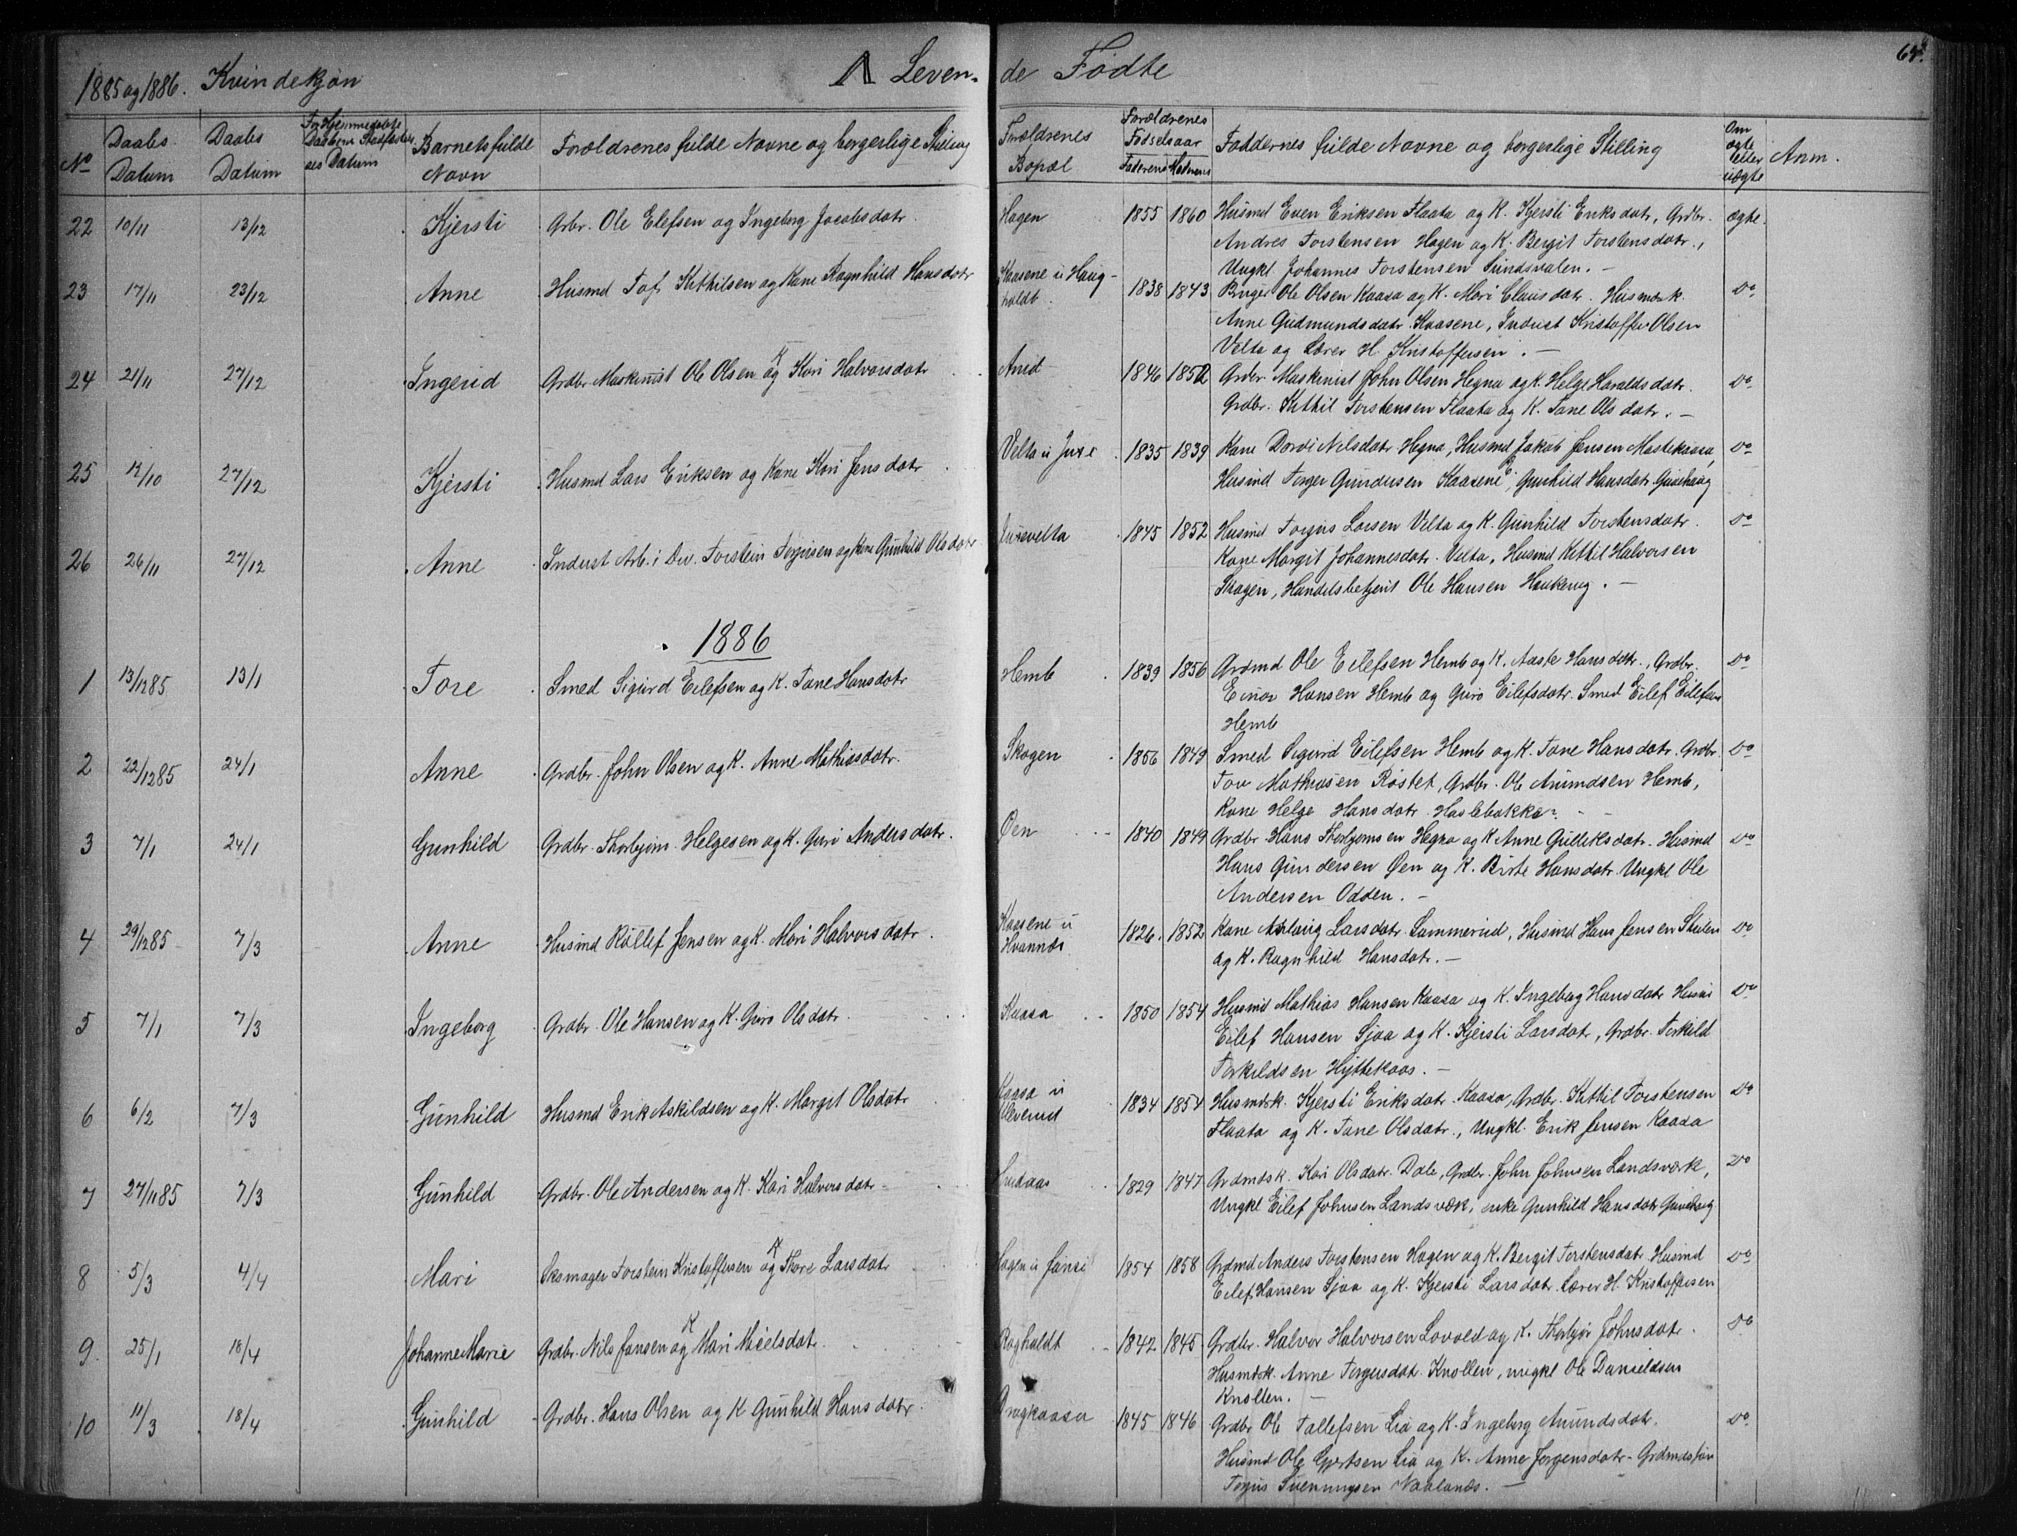 1885 og 1886. Kvindekjøn A Leven- de Fødte
No Daabs Datum Daabs Datum Barnets fulde Navn Forældrenes fulde Navne og borgerlige Stilling Forældrenes Bopæl Forældrenes Fødselsaar Faderens Moderens Faddernes fulde Navne og borgerlige Stilling Om ægte eller uægte Anm.
22 10/11 13/12 Kjersti Grbr. Ole Elefsen og Ingeborg Jacobsdatr. Hagen 1855 1860 Husmd Even Eriksen Flaata og K. Kjersti Eriksdatr, Grdbr. ægte.
Andres Torstensen Hagen og K. Bergit Torstensdatr.,
Ungkl. Johannes Torstensen Sundsvalen. -
23 17/11 23/12 Anne Husmd Tof Kithilsen og Kane Ragnhild Hansdatr Kaasene u Haug-
holdt. 1838 1843 Bruger Ole Olsen Kaasa og K. Mari Clausdatr. Husmdsk. Do
Anne Gudmundsdatr Kaasene, Indust Kristoffer Olsen
Velta og Lærer H. Kristoffersen. -
24 21/11 27/12 Ingerid Grdbr Maskinist Ole Olsen og K Kari Halvorsdatr 1846 1852 Grdbr. Maskinist John Olsen Hegna og K. Helge Haraldsdatr. Do
Grdbr. Kithil Torstensen Flaata og K. Tane Olsdatr. -
25 12/10 27/12 Kjersti Husmd Lars Eriksen og Kone Kari Jensdatr Velta u Juxe 1835 1839 Kane Dordi Nilsdatr Hegna, Husmd Jakob Jensen Mastekaasa, Do
Husmd Torger Gundersen Kaasene, Gunhild Hansdatr Gunehaug
26 26/11 27/12 Anne Indust Arb. i Dv. Torstein Torgrisen og Kone Gunhild Olsdatr Juxevelta 1845 1852 Husmd Torgus Larsen Velta og K. Gunhild Torstensdatr. Do
Kone Margit Johannesdatr. Velta, Husmd Kittil Halvorsen
Skogen, Handelsbetjent Ole Hansen Haukerug. -
1886
1 13/12 85 13/1 Tore Smed Sigurd Eilefsen og K. Tane Hansdatr Hemb 1839 1856 Grdmd Ole Eilefsen Hemb og K. Aaste Hansdatr., Grdbr. Do
Einar Hansen Hemb og Guro Eilefsdatr. Smed Eilef Eilefsen
Hemb
2 22/12 85 24/1 Anne Grdbr. John Olsen og K. Anne Mathisdatr. Skogen 1856 1849 Smed Sigurd Eilefsen Hemb og K. Tane Hansdatr. Grdbr Do
Tov Mathisen Rostet, Grdbr. Ole Amundsen Hemb,
Kone Helge Hansdatr Haslebakke. -
3 7/1 24/1 Gunhild Grdbr. Thorbjørn Helgesen og K. Guri Andersdatr. Øen 1840 1849 Grdbr Hans Thorbjørnsen Hegna og K Anne Gulleiksdatr. Husmd Do
Hans Gundersen Øen og K. Birte Hansdatr. Ungkl Ole
Andersen Odden. -
4 29/12 85 7/3 Anne Husmd Rollef Jensen og K. Mari Halvorsdatr. Kaasene u
Hvannæs 1826. 1852 Kane Aslaug Larsdatr. Sommerud, Husmd Hans Jensen Stulen Do
og K. Ragnhild Hansdatr. -
5 7/1 7/3 Ingeborg Grdbr. Ole Hansen og K. Guro Olsdatr. Kaasa 1850 1854 Husmd Mathias Hansen Kaasa og K. Ingeborg Hansdatr Do
Eilef Hansen Sjaa og K. Kjersti Larsdatr, Grdbr. Torkild
Torkildsen Hyttekaas. -
6 6/2 7/3 Gunhild Husmd Erik Askildsen og K. Margit Olsdatr Kaasa u
Kleverud 1834 1854 Husmdsk. Kjersti Eriksdatr. Kaasa, Grdbr. Kittil Torstensen Do
Flaata og K. Tane Olsdatr., Ungkl. Erik Jensen Kaasa
7 27/11 85 7/3 Gunhild Grdbr. Ole Andersen og K. Kari Halvorsdatr 1829 1847 Grdmdsk. Kari Olsdatr. Dale, Grdbr. John Johnsen Landsværk, Do
Ungkl Eilef Johnsen Landsværk, enke Gunhild Hansdatr
8 5/3 4/4 Mari Skomager Torstein Kristoffersen og K Thore Larsdatr Hagen u Jønsi 1854 1858 Grdmd Anders Torstensen Hagen og K. Bergit Torstensdatr. Husmd Do
Eilef Hansen Sjaa og K. Kjersti Larsdatr. Lærer H. Kristoffersen
9 25/1 18/4 Johanne Marie Grdbr. Nils Jansen og K Mari Nielsdatr. Ragholdt 1842 1845 Grdbr. Halvor Halvorsen Lovold og K. Thorbjør Johnsdatr. Do
Husmdsk. Anne Torgersdatr. Knollen, ungkl Ole Danieldsen
Knollen. -
10 11/3 18/4 Gunhild Grdbr. Hans Olsen og K Gunhild Hansdatr. 1845 1846 Grdbr Ole Tallefsen Lia og K. Ingeborg Amundsdatr. Do
Husmd Ole Gjertsen Lia og K. Anne Jørgensdatr. Grdmdssøn
Torjus Svenningsen Naalands. -